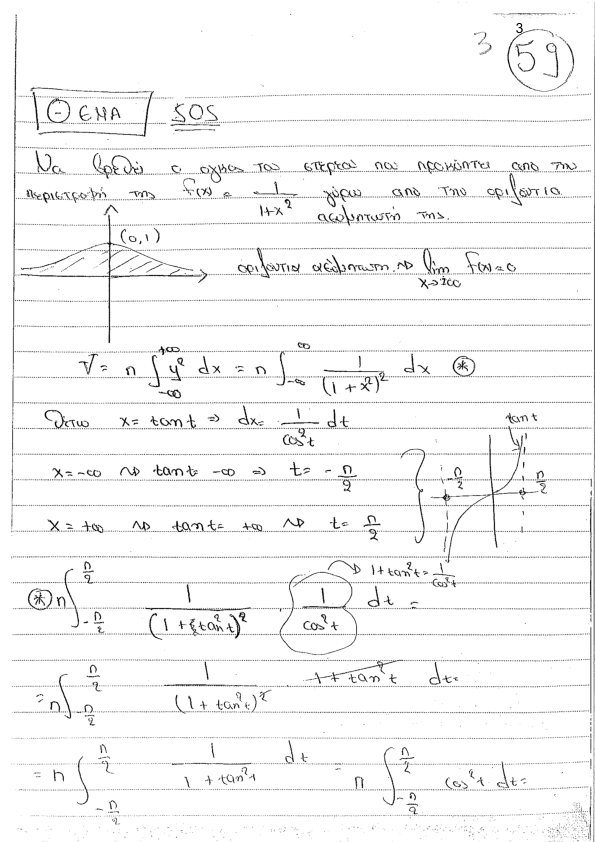 3 3 59
ΘΕΜΑ SOS
Να βρεθεί ο όγκος του στερεού που προκύπτει από την
περιστροφή της f(x) = 1/(1+x²) γύρω από την οριζόντια
ασύμπτωτή της.
(0,1)
οριζόντια ασύμπτωτη ⇝ lim x→±∞ f(x) = 0
V = π ∫_{-∞}^{+∞} y² dx = π ∫_{-∞}^{∞} 1/(1+x²)² dx (*)
Θέτω x = tan t ⇒ dx = 1/cos²t dt
tan t
x = -∞ ⇝ tan t = -∞ ⇒ t = -π/2
-π/2 π/2
x = +∞ ⇝ tan t = +∞ ⇝ t = π/2
→ 1 + tan²t = 1/cos²t
(*) π ∫_{-π/2}^{π/2} 1/(1 + tan²t)² · 1/cos²t dt =
= π ∫_{-π/2}^{π/2} 1/(1 + tan²t)² · 1 + tan²t dt =
= π ∫_{-π/2}^{π/2} 1/(1 + tan²t) dt = π ∫_{-π/2}^{π/2} cos²t dt =